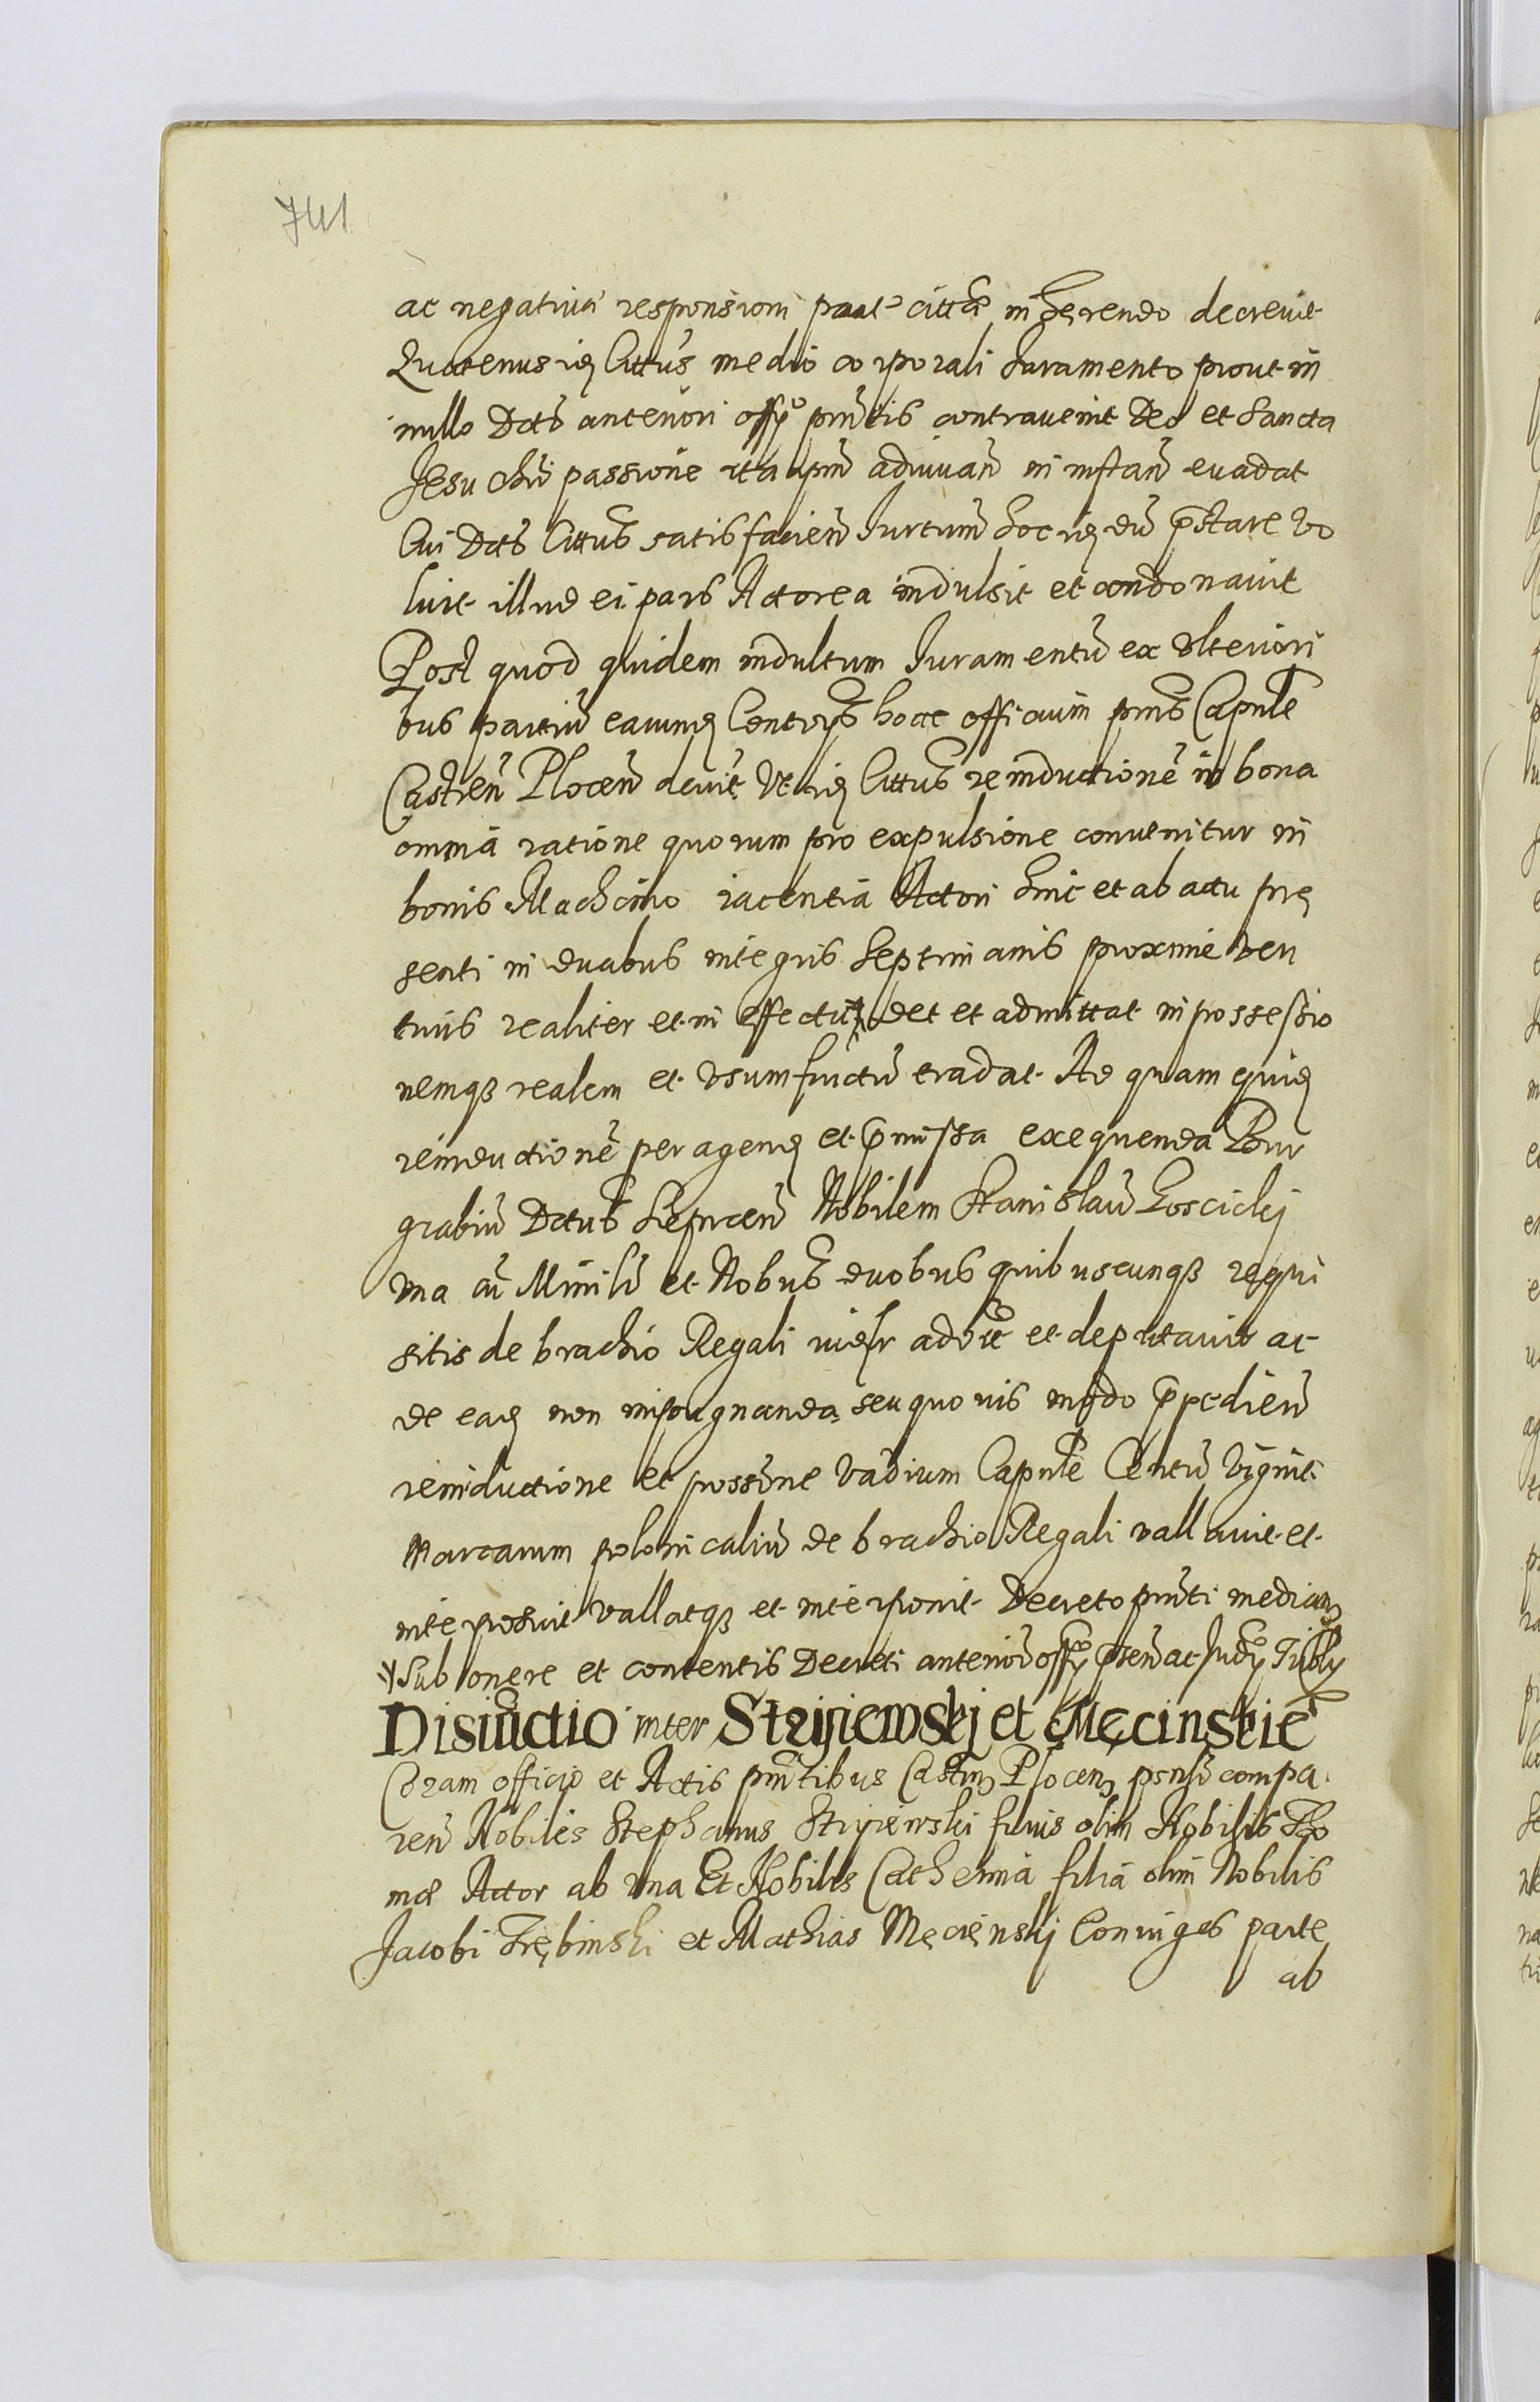 741
ac negativa responsioni part citta inherendo decrevit
Quatenus idem Cittus medio corporali Juramento prout in
nullo Dcto anteriori offo pntis contravenit Deo et Sancta
Jesu Chri passione ita ipm adiuvan in instan evadat
Cui Dcto Cittus satisfacien Jurtum hoc idem dum pstare vo
luit illud ei pars Actorea indulsit et condonavit
Post quod quidem indultum Juramentu ex ulteriori
bus partiu earumdem Controvs hocce officium pns Capnle
Castren Plocen devit Ut idem Cittus reinductione in bona
omnia ratione quorum pro expulsione convenitur in
bonis Machcino iacentia Actori hinc et ab actu pre
senti in duabus integris Septimanis proxime ven
turis realiter et in effectu * det et admittat in possessio
nemqz realem et Usumfructu tradat Ad quam quidem
reinductione peragendam et pmissa exequenda Bur
grabiu Dctus Sieprcen Nobilem Stanislau Goscickj
Una cu Minili et Nobus duobus quibuscunqz requi
sitis de brachio Regali addit et deputavit ac
de eadem non impugnanda seu quovis modo ppedien
reinductione et possone Vadium Capnle Centu Viginti
Marcarum polonicaliu de brachio Regali vallavit et
interposuit vallatqz et interponit Decreto pnti median
* Sub onere et contentis Decreti anterior offy pten ac Judy
Disiuctio inter Strijiewskj et Męcinskie
Coram officio et Actis pntibus Castren Plocen psnlr compa
ren Nobiles Stephanus Strijiewski filius olim Nobilis Tho
mæ Actor ab Una Et Nobilis Catherina filia olim Nobilis
Jacobi Trębinski et Mathias Męcienskj Coniuges parte
ab